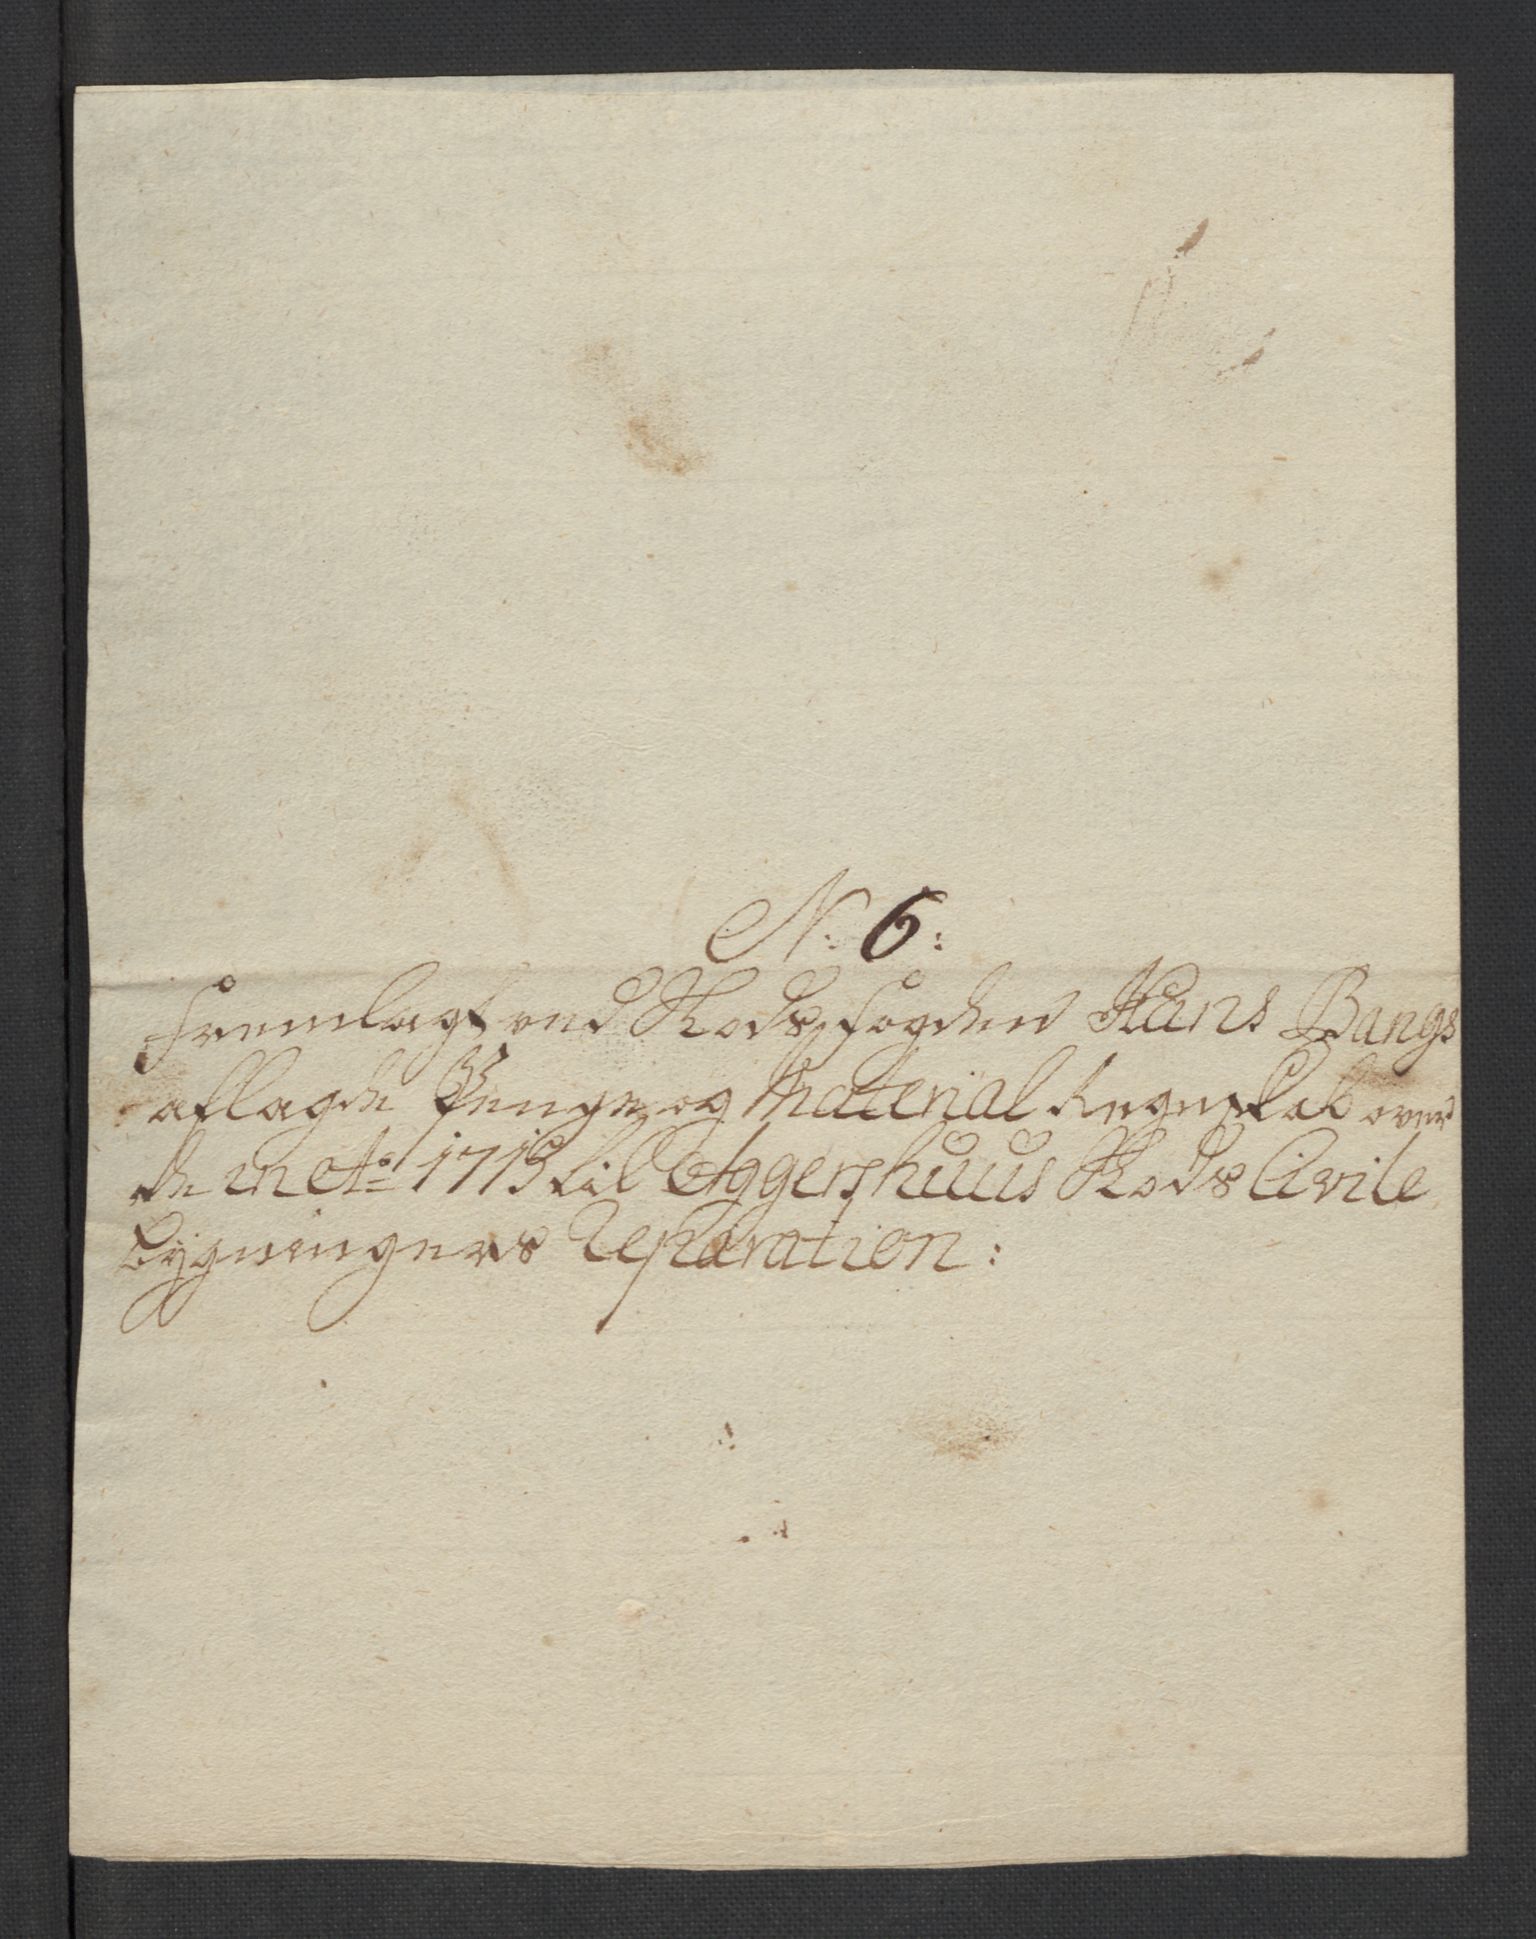 N: 6:
Fremlagt ved Slodsfogden Hans Bangs
aflagde Penge og Material Regnskab over
de in Ao 1715 til Aggershuus Slods Civile
Bygningers Reparation: